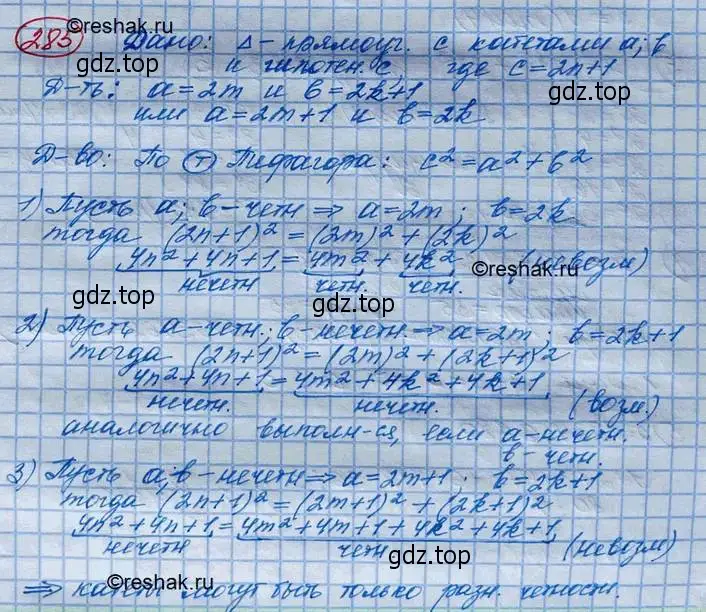 ©reshak.ru
285 Дано: Δ - прямоуг. с катетами a; b
и гипотен. c, где c = 2n+1
gdz.top
Д-ть: a = 2m и b = 2k+1
или a = 2m+1 и b = 2k
gdz.top
Д-во: По Т Пифагора: c² = a² + b²
1) Пусть a; b - четн ⇒ a = 2m ; b = 2k
тогда (2n+1)² = (2m)² + (2k)²
4n² + 4n + 1 = 4m² + 4k² (невозм)
©reshak.ru
нечетн четн. четн.
gdz.top
gdz.top
2) Пусть a - четн.; b - нечетн. ⇒ a = 2m ; b = 2k+1
тогда (2n+1)² = (2m)² + (2k+1)²
4n² + 4n + 1 = 4m² + 4k² + 4k + 1
нечетн. нечетн. (возм.)
аналогично выполн-ся, если a - нечетн.
b - четн.
gdz.top
3) Пусть a; b - нечетн ⇒ a = 2m+1 ; b = 2k+1
тогда (2n+1)² = (2m+1)² + (2k+1)²
4n² + 4n + 1 = 4m² + 4m + 1 + 4k² + 4k + 1
нечетн четн (невозм)
gdz.top
©reshak.ru
⇒ катеты могут быть только разн. четности.
gdz.top